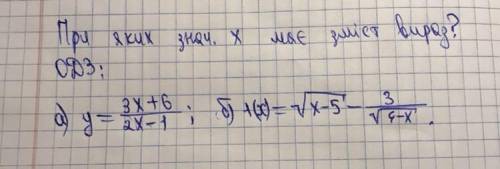 При яких знач. х має зміст вираз?
ОДЗ:
а) y = \frac{3x+6}{2x-1}; б) f(x) = \sqrt{x-5} - \frac{3}{\sqrt{9-x}}.